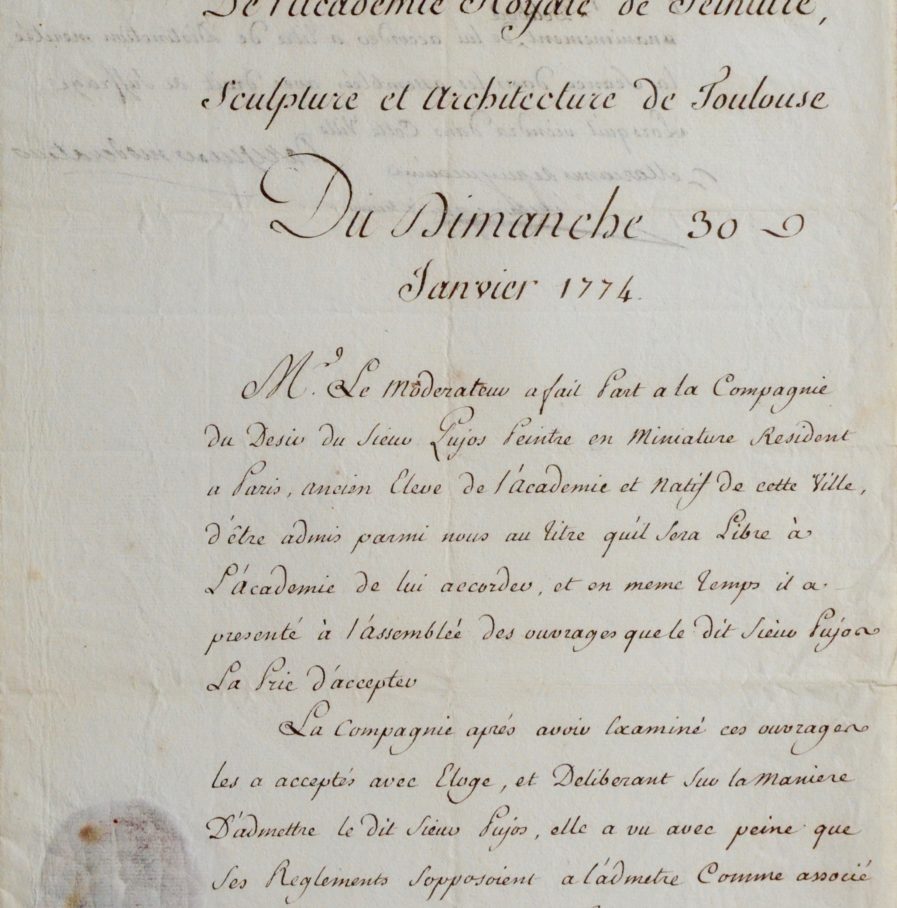 De l'Academie Royale de Peinture,
Sculpture et Architecture de Toulouse
Du Dimanche 30
Janvier 1774.
Mr. Le Moderateur a fait Part a la Compagnie
du Desir du Sieur Pujos Peintre en Miniature Resident
a Paris, ancien Eleve de l'Academie et Natif de cette Ville,
d'être admis parmi nous au titre qu'il Sera Libre à
L'Academie de lui accorder, et en meme temps il a
presenté à l'Assemblée des ouvrages que le dit Sieur Pujos
La Prie d'accepter
La Compagnie aprés avoir Examiné ces ouvrages
les a acceptés avec Eloge, et Deliberant Sur la Maniere
D'admettre le dit Sieur Pujos, elle a vu avec peine que
Ses Reglements Sopposoient a l'admetre Comme associé